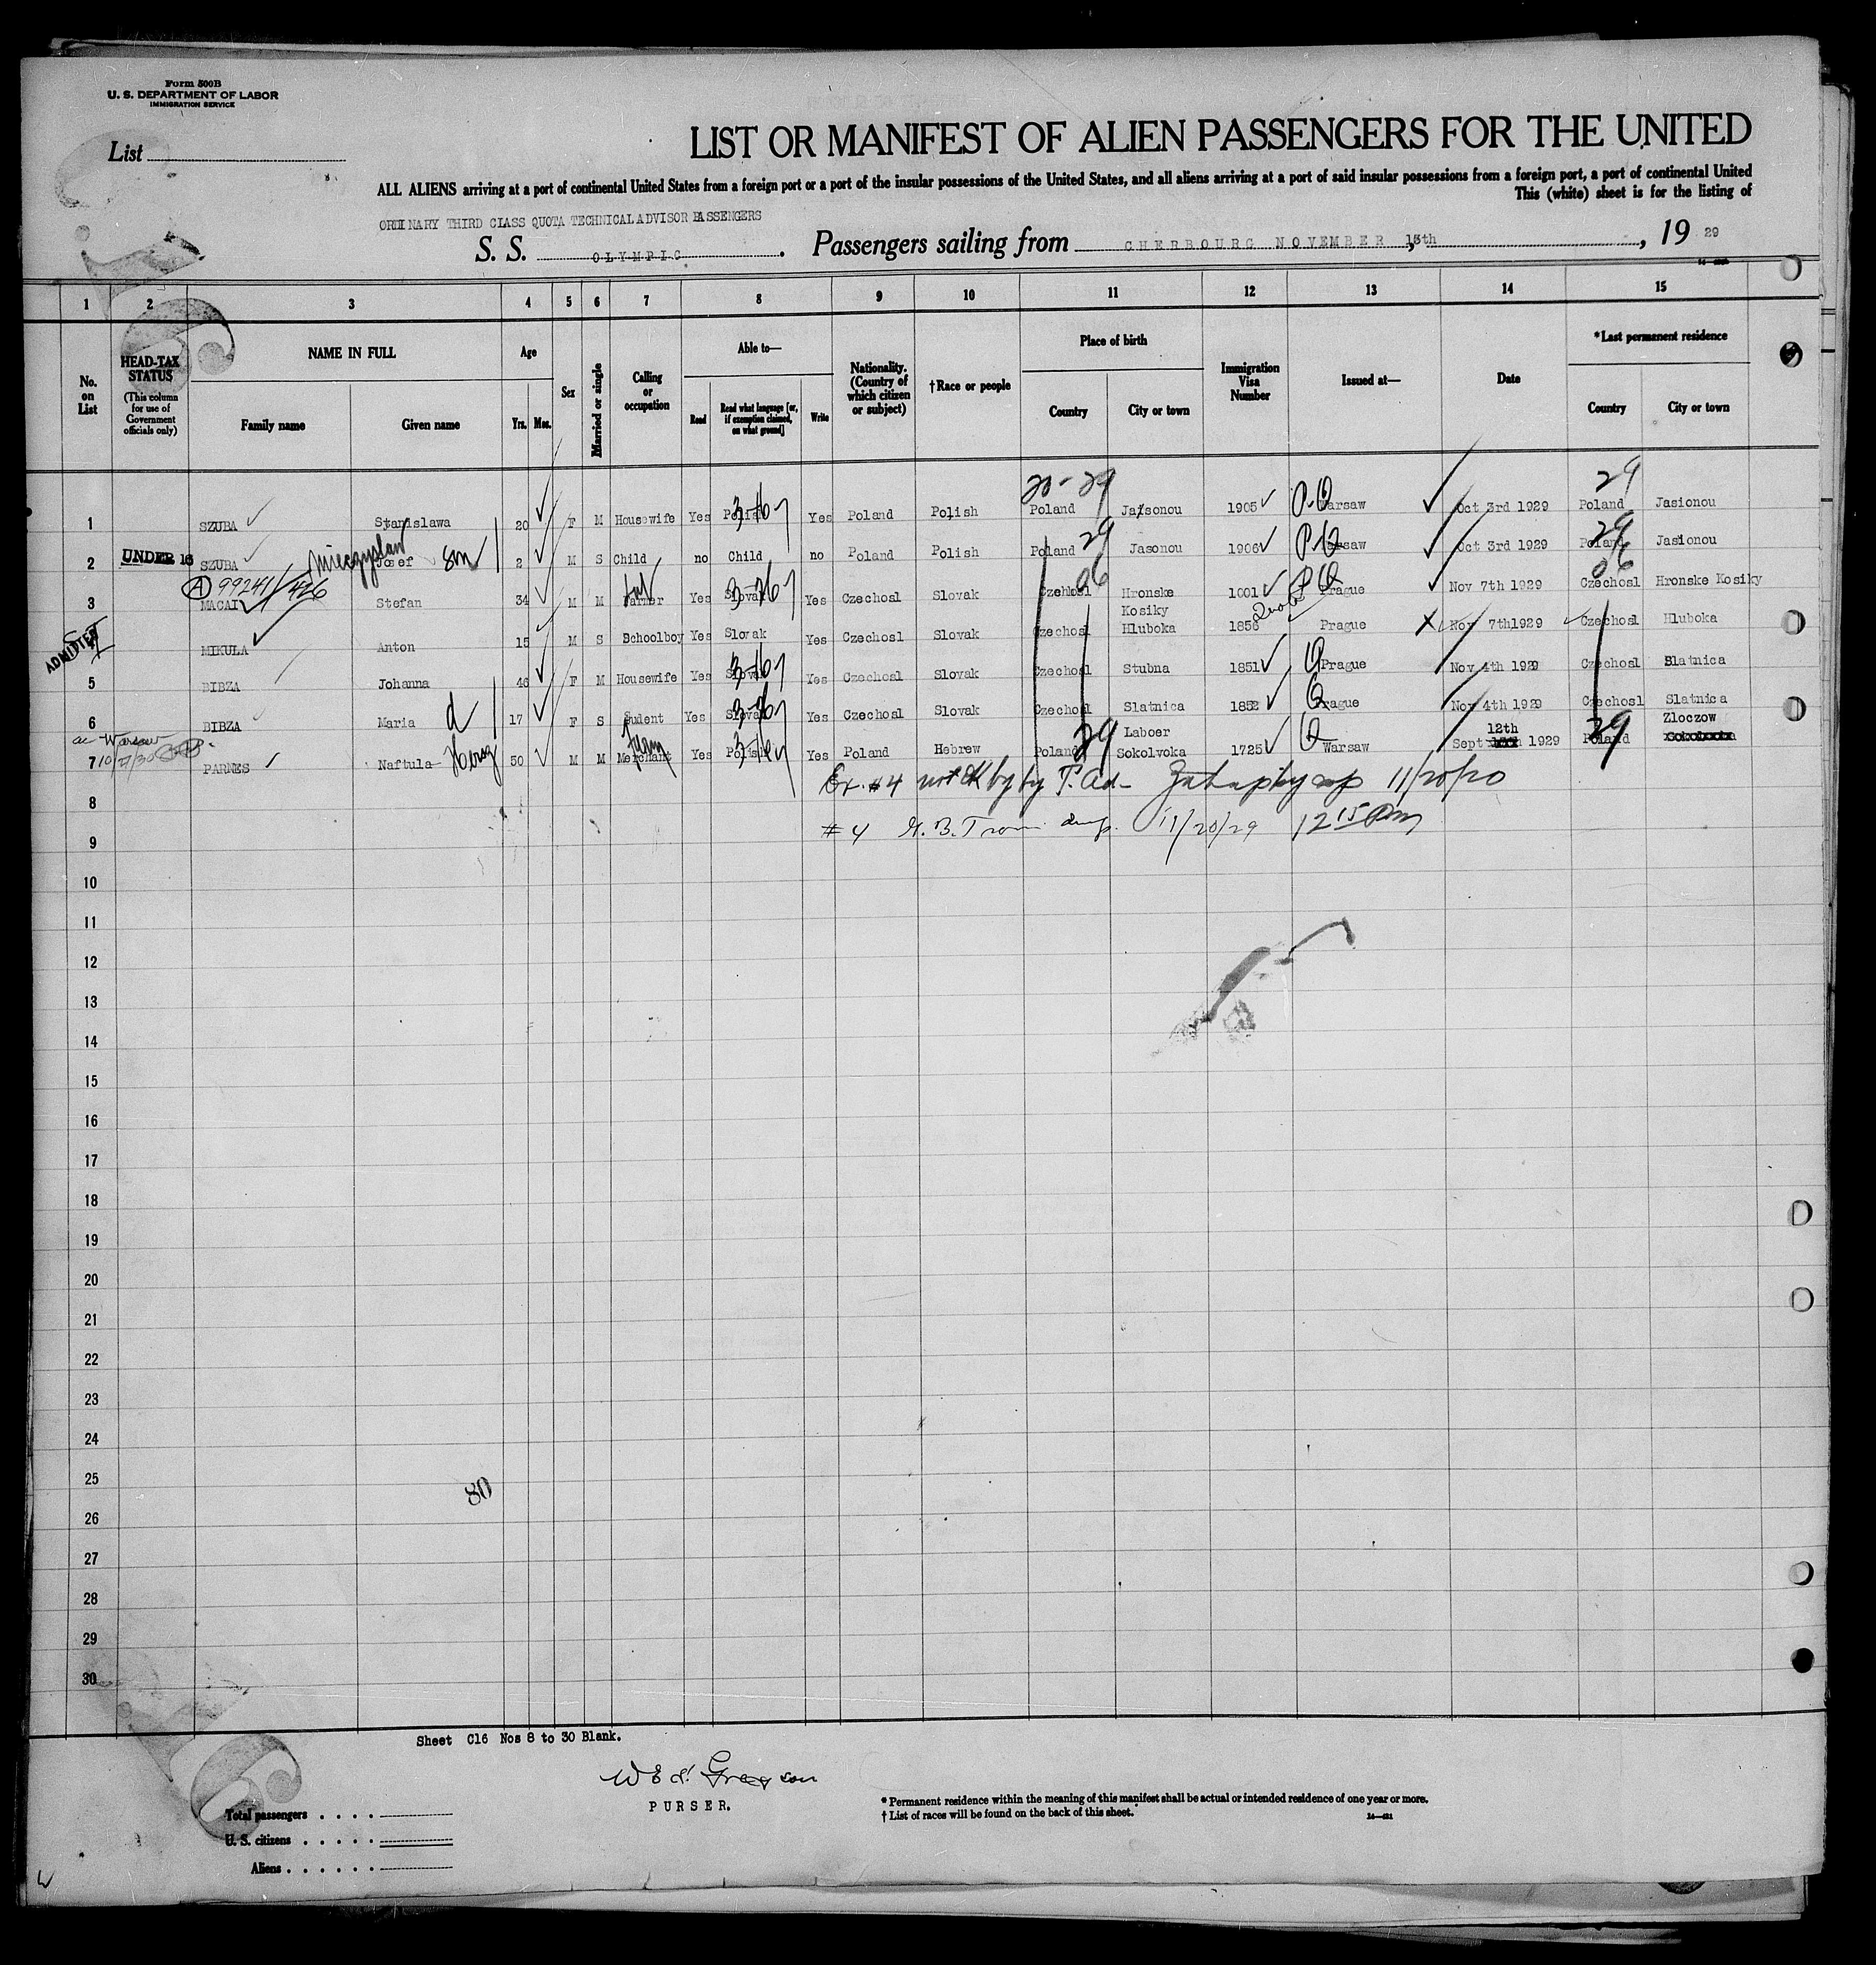 Form 500B
U. S. DEPARTMENT OF LABOR
IMMIGRATION SERVICE
List
LIST OR MANIFEST OF ALIEN PASSENGERS FOR THE UNITED
ALL ALIENS arriving at a port of continental United States from a foreign port or a port of the insular possessions of the United States, and all aliens arriving at a port of said insular possessions from a foreign port, a port of continental United
This (white) sheet is for the listing of
ORDINARY THIRD CLASS QUOTA TECHNICAL ADVISOR PASSENGERS
S. S. OLYMPIC. Passengers sailing from CHERBOURG NOVEMBER 13th, 19 29
1 2 3 4 5 6 7 8 9 10 11 12 13 14 15
No. on List
HEAD-TAX STATUS (This column for use of Government officials only)
NAME IN FULL Family name Given name
Age Yrs. Mos.
Sex
Married or single
Calling or occupation
Able to— Read Read what language [or, if exemption claimed, on what ground] Write
Nationality. (Country of which citizen or subject)
†Race or people
Place of birth Country City or town
Immigration Visa Number
Issued at—
Date
*Last permanent residence Country City or town
20-29 29
1 SZUBA Stanislawa 20 F M Housewife Yes Polish Yes Poland Polish Poland Jasionou 1905 P.Q Warsaw Oct 3rd 1929 Poland Jasionou
Mieczyslaw 29 29
2 UNDER 16 SZUBA Josef son 2 M S Child no Child no Poland Polish Poland Jasonou 1906 P.Q Warsaw Oct 3rd 1929 Poland Jasionou
A 99241/426 06 06
3 MACAI Stefan 34 M M Farmer Yes Slovak Yes Czechosl Slovak Czehosl Hronske Kosiky 1001 PQ Prague Nov 7th 1929 Czechosl Hronske Kosiky
ADMITTED MIKULA Anton 15 M S Schoolboy Yes Slovak Yes Czechosl Slovak Czechosl Hluboka 1856 Prague Nov 7th1929 Czechosl Hluboka
5 BIBZA Johanna 46 F M Housewife Yes Slovak Yes Czechosl Slovak Czechosl Stubna 1851 Q Prague Nov 4th 1929 Czechosl Blatnica
6 BIBZA Maria d 17 F S Student Yes Slovak Yes Czechosl Slovak Czechosl Slatnica 1852 Q Prague Nov 4th 1929 Czechosl Slatnica
Warsaw
7 PARNES Naftula Herz 50 M M Merchant Yes Polish Yes Poland Hebrew Poland 29 Laboer Sokolvoka 1725 Q Warsaw Sept 12th 1929 Poland 29 Zloczow
8 #4 by T. Ad- 11/20/20
9 #4 11/20/29 12 15 Pm
10
11
12
13
14
15
16
17
18
19
20
21
22
23
24
25
80
26
27
28
29
30
Sheet C16 Nos 8 to 30 Blank.
PURSER.
Total passengers
U. S. citizens
Aliens
* Permanent residence within the meaning of this manifest shall be actual or intended residence of one year or more.
† List of races will be found on the back of this sheet.